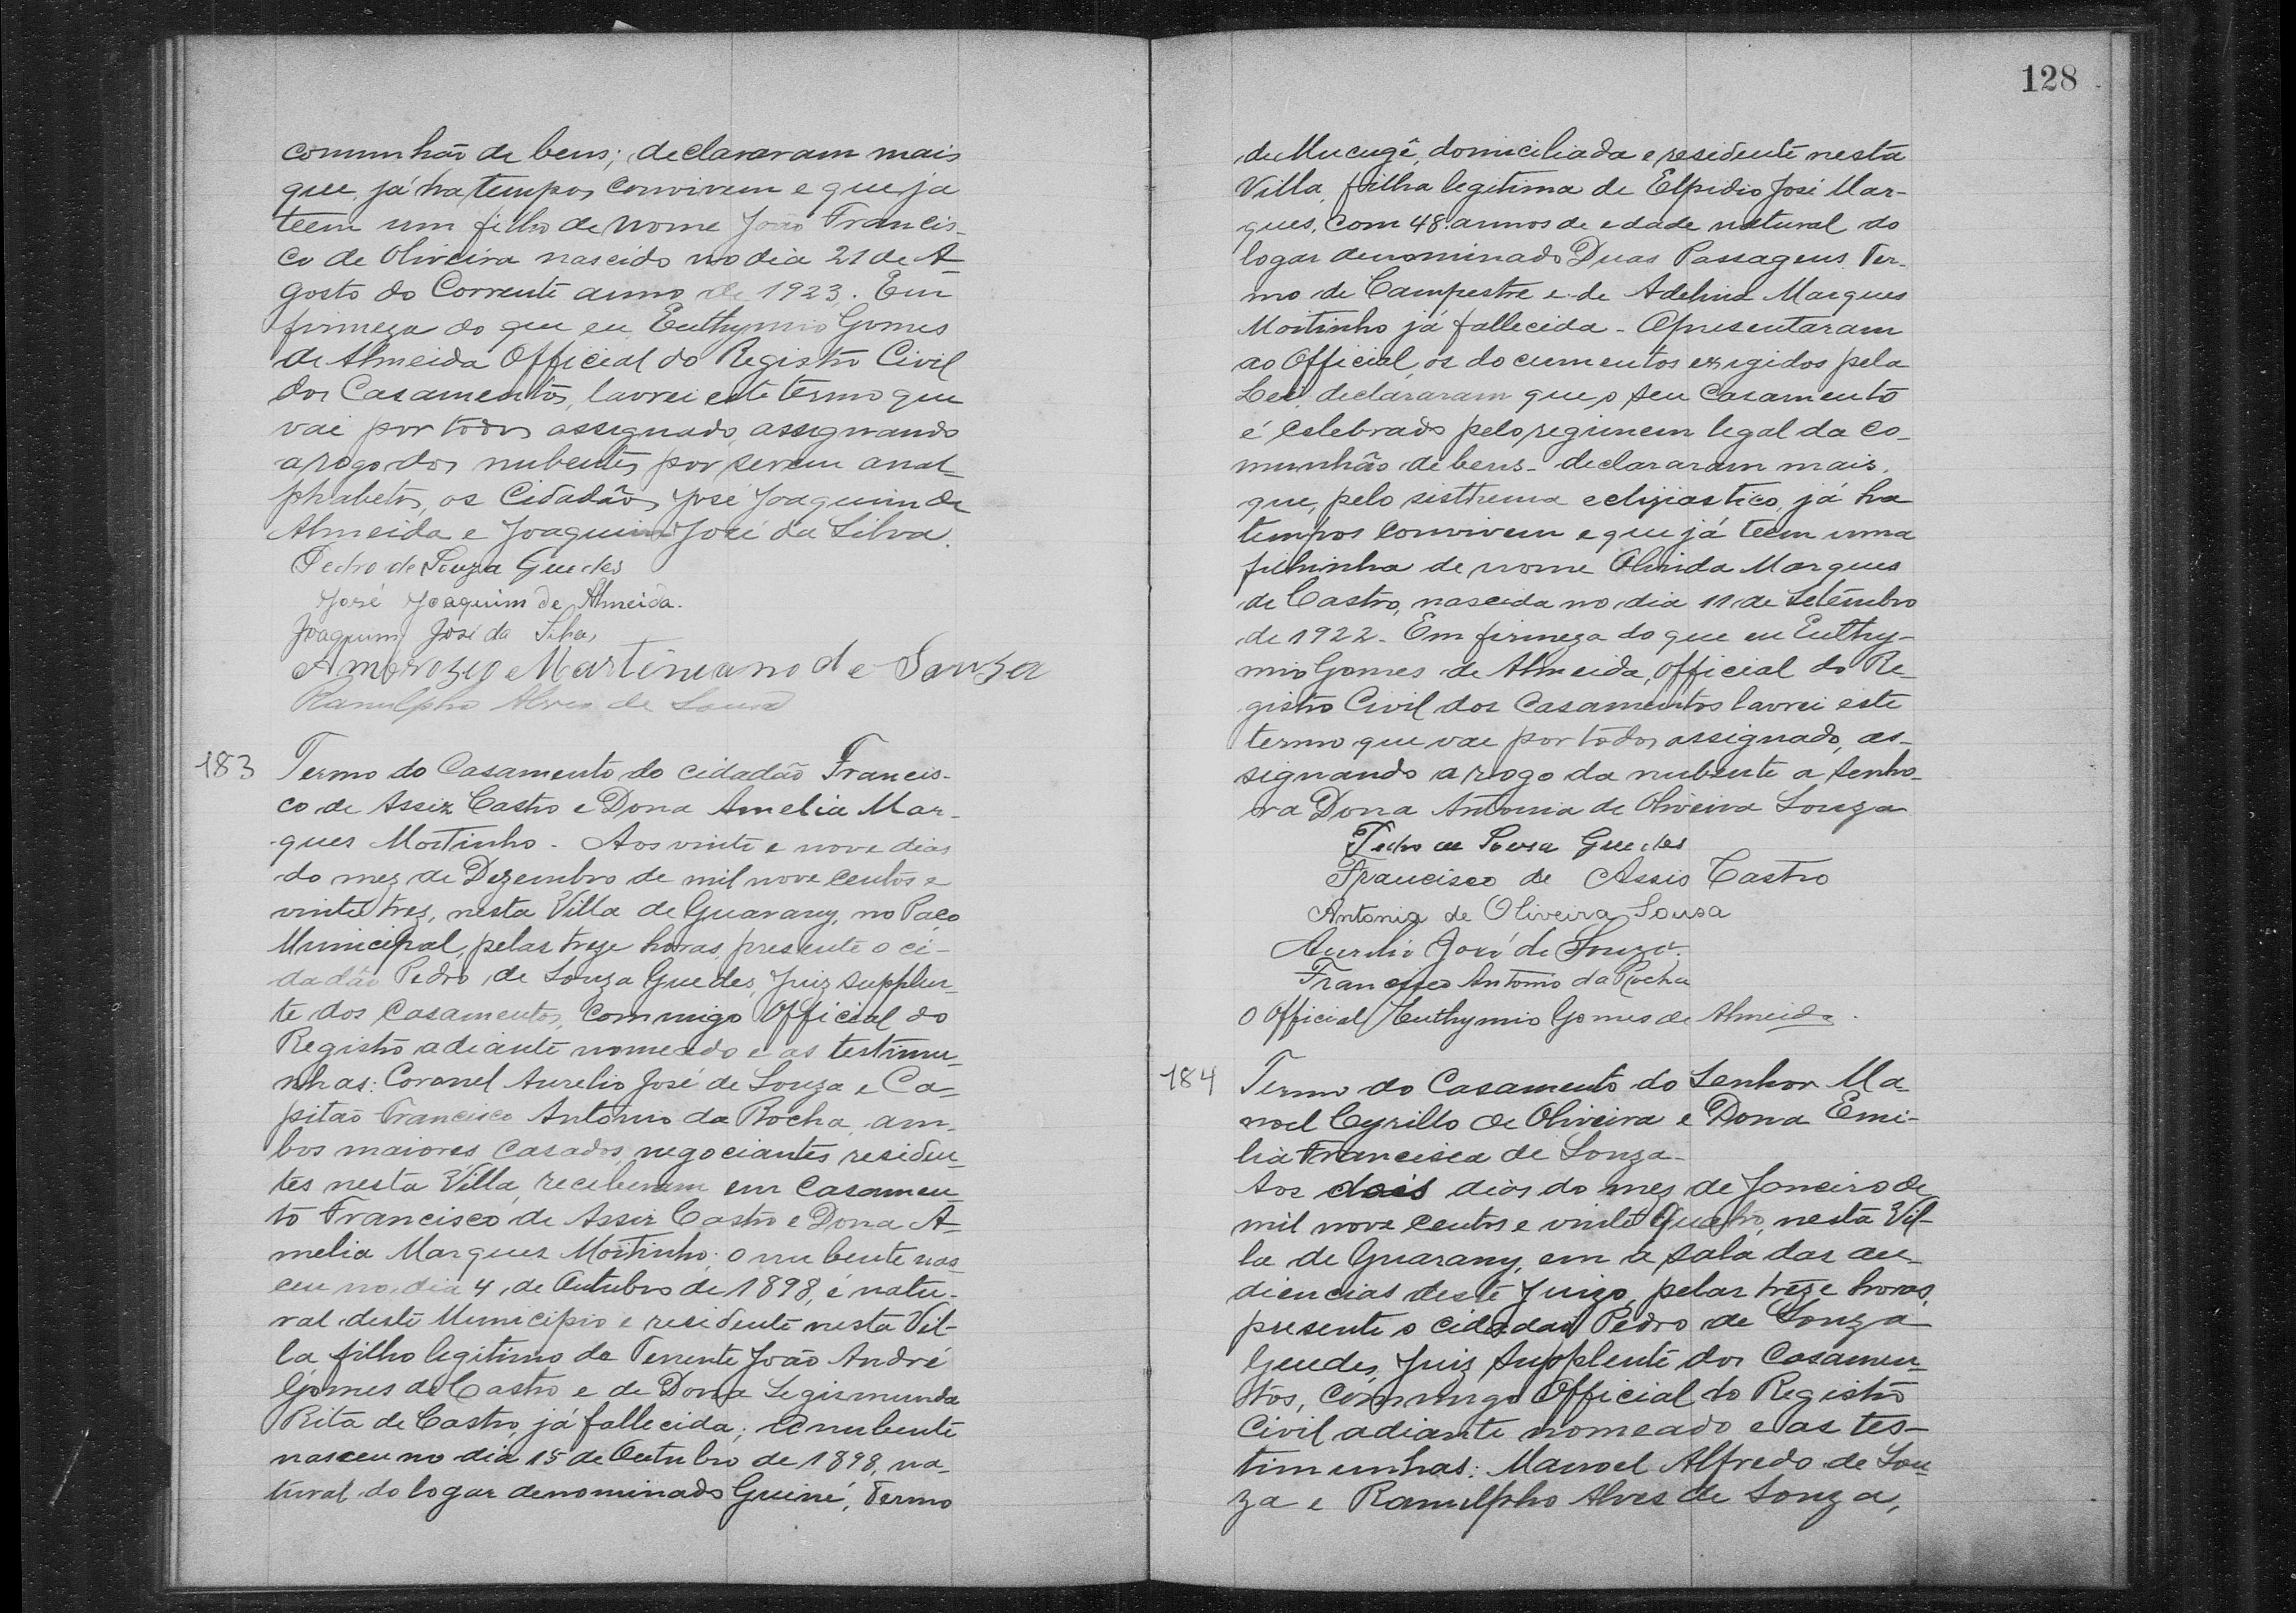 communhão de bens; declararam mais
que já ha tempos convivem e que ja
teem um filho de nome João Francis-
co de Oliveira nascido no dia 21 de A-
gosto do Corrente anno de 1923. Em
firmeza do que eu Euthymio Gomes
de Almeida Official do Registro Civil
dos Casamentos, lavrei este termo que
vai por todos assignado, assignando
a rogo dos nubentes por serem anal-
phabetos, os Cidadãos José Joaquim de
Almeida e Joaquim José da Silva.
Pedro de Souza Guedes
José Joaquim de Almeida.
Joaquim José da Silva,
Amorozio Martiniano de Souza
Ranulpho Alves de Souza
183 Termo do Casamento do cidadão Francis-
co de Assiz Castro e Dona Amelia Mar-
ques Moitinho. Aos vinte e nove dias
do mez de Dezembro de mil nove centos e
vinte trez, nesta Villa de Guarany, no Paço
Municipal, pelas treze horas, presente o ci-
dadão Pedro de Souza Guedes, Juiz supplen-
te dos Casamentos, commigo Official do
Registro adiante nomeado e as testimu-
nhas: Coronel Aurelio José de Souza e Ca-
pitão Francisco Antonio da Rocha, am-
bos maiores casados, negociantes residen-
tes nesta Villa, receberam em Casamen-
to Francisco de Assiz Castro e Dona A-
melia Marques Moitinho; o nubente nas-
ceu no dia 4, de Outubro de 1898, é natu-
ral deste Municipio e residente nesta Vil-
la, filho legitimo do Tenente João André
Gomes de Castro e de Dona Segismunda
Rita de Castro, já fallecida; a nubente
nasceu no dia 15 de Outubro de 1898, na-
tural do logar denominado Guiné, Termo
128
de Mucugê, domiciliada e residente nesta
Villa, filha legitima de Elpidio José Mar-
ques, com 48 annos de edade natural do
logar denominado Duas Passagens Ter-
mo de Campestre e de Adelina Marques
Moitinho já fallecida - Apresentaram
ao Official, os documentos exigidos pela
Lei, declararam que o seu Casamento
é celebrado pelo regimem legal da co-
munhão de bens - declararam mais,
que, pelo sisthema eclijiastico, já ha
tempos convivem e que já teem uma
filhinha de nome Olinda Marques
de Castro, nascida no dia 11 de Setembro
de 1922 - Em firmeza do que eu Euthy-
mio Gomes de Almeida, Official do Re-
gistro Civil dos Casamentos lavrei este
termo que vae por todos assignado, as-
signando a rogo da nubente a Senho-
ra Dona Antonia de Oliveira Souza
Pedro de Souza Guedes
Francisco de Assis Castro
Antonia de Oliveira Sousa
Aurelio José de Souza.
Francisco Antonio da Rocha
O Official Euthymio Gomes de Almeida.
184 Termo do Casamento do Senhor Ma-
noel Cyrillo de Oliveira e Dona Emi-
lia Francisca de Souza -
Aos dois dias do mez de Janeiro de
mil nove centos e vinte quatro, nesta Vil-
la de Guarany, em a sala das au-
diencias deste Juizo, pelas treze horas,
presente o cidadão Pedro de Souza
Guedes, Juiz Supplente dos Casamen-
tos, commigo Official do Registro
Civil adiante nomeado e as tes-
timunhas: Manoel Alfredo de Sou-
za e Ranulpho Alves de Souza,